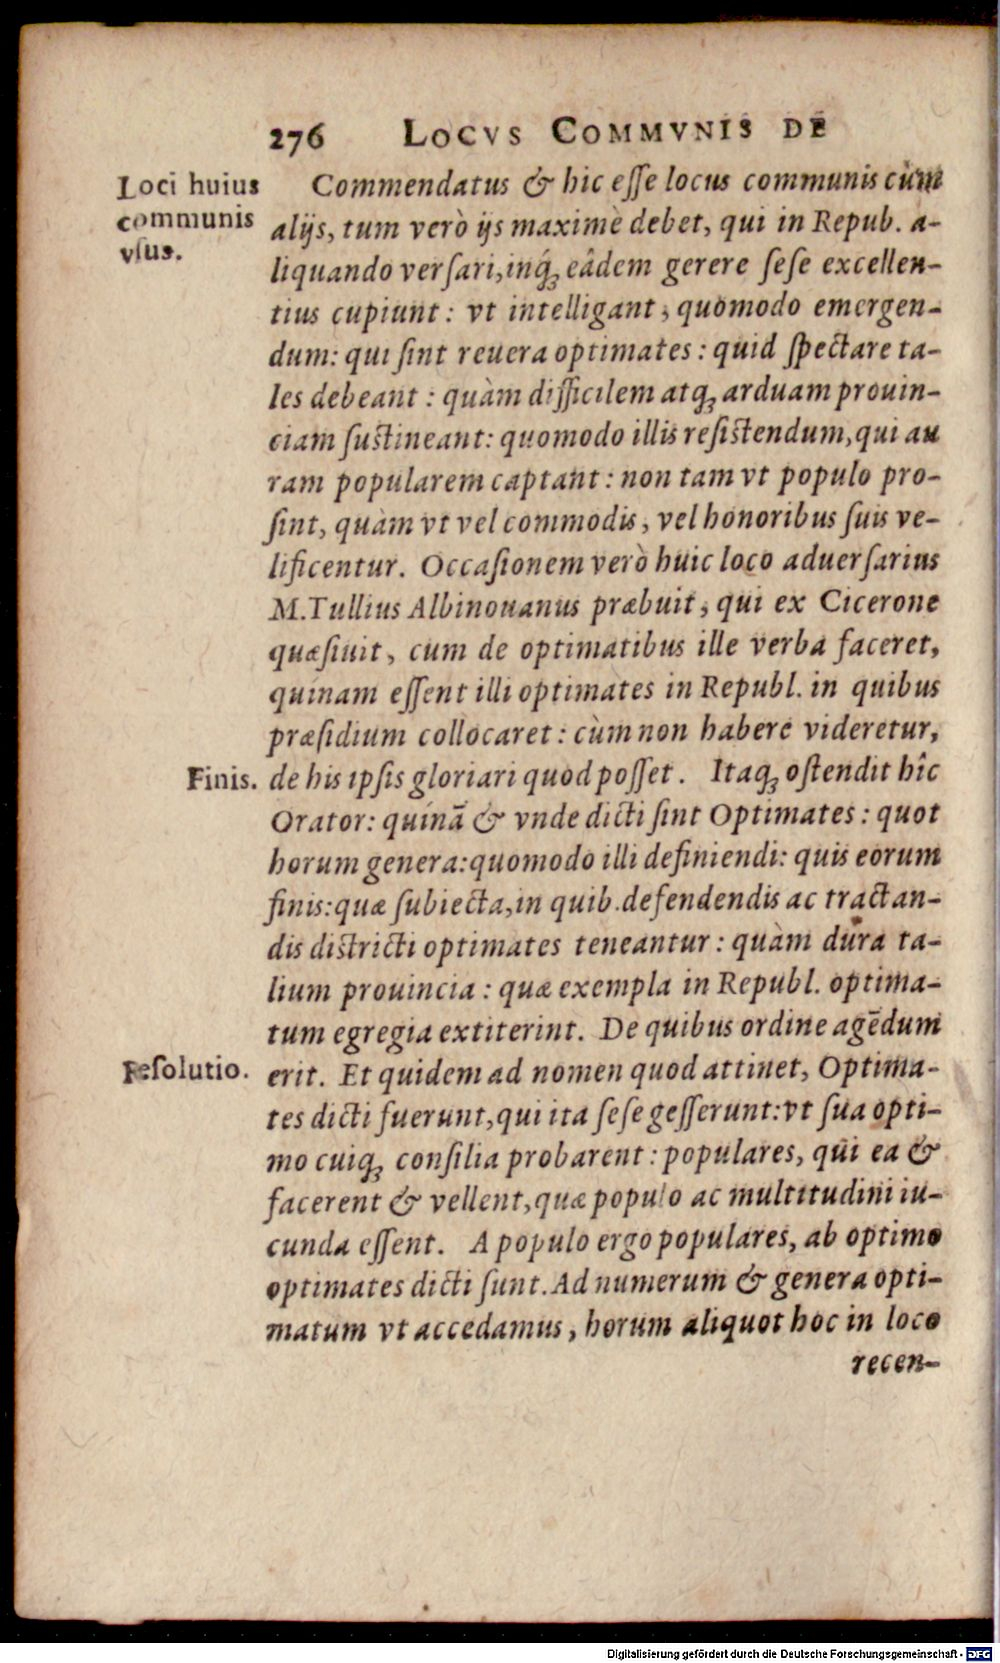 276 LOCVS COMMVNIS DE
Loci huius
communis
vſus.
Commendatus & hic eſſe locus communis cùm
alijs, tum verò ijs maximè debet, qui in Repub. a-
liquando verſari, inq́ꝫ eâdem gerere ſeſe excellen-
tius cupiunt: vt intelligant, quomodo emergen-
dum: qui ſint reuera optimates: quid ſpectare ta-
les debeant: quàm difficilem atqꝫ arduam prouin-
ciam ſustineant: quomodo illis reſistendum, qui au
ram popularem captant: non tam vt populo pro-
ſint, quàm vt vel commodis, vel honoribus ſuis ve-
lificentur. Occaſionem verò huic loco aduerſarius
M. Tullius Albinouanus præbuit, qui ex Cicerone
quæſiuit, cum de optimatibus ille verba faceret,
quínam eſſent illi optimates in Republ. in quibus
præſidium collocaret: cùm non habere videretur,
Finis.
de his ipſis gloriari quod poſſet. Itaqꝫ oſtendit hîc
Orator: quínã & vnde dicti ſint Optimates: quot
horum genera: quomodo illi definiendi: quis eorum
finis: quæ ſubiecta, in quib. defendendis ac tractan-
dis districti optimates teneantur: quàm dura ta-
lium prouincia: quæ exempla in Republ. optima-
tum egregia extiterint. De quibus ordine agēdum
Reſolutio.
erit. Et quidem ad nomen quod attinet, Optima-
tes dicti fuerunt, qui ita ſeſe geſſerunt: vt ſua opti-
mo cuiqꝫ conſilia probarent: populares, qui ea &
facerent & vellent, quæ populo ac multitudini iu-
cunda eſſent. A populo ergo populares, ab optimo
optimates dicti ſunt. Ad numerum & genera opti-
matum vt accedamus, horum aliquot hoc in loco
recen-
Digitalisierung gefördert durch die Deutsche Forschungsgemeinschaft - DFG